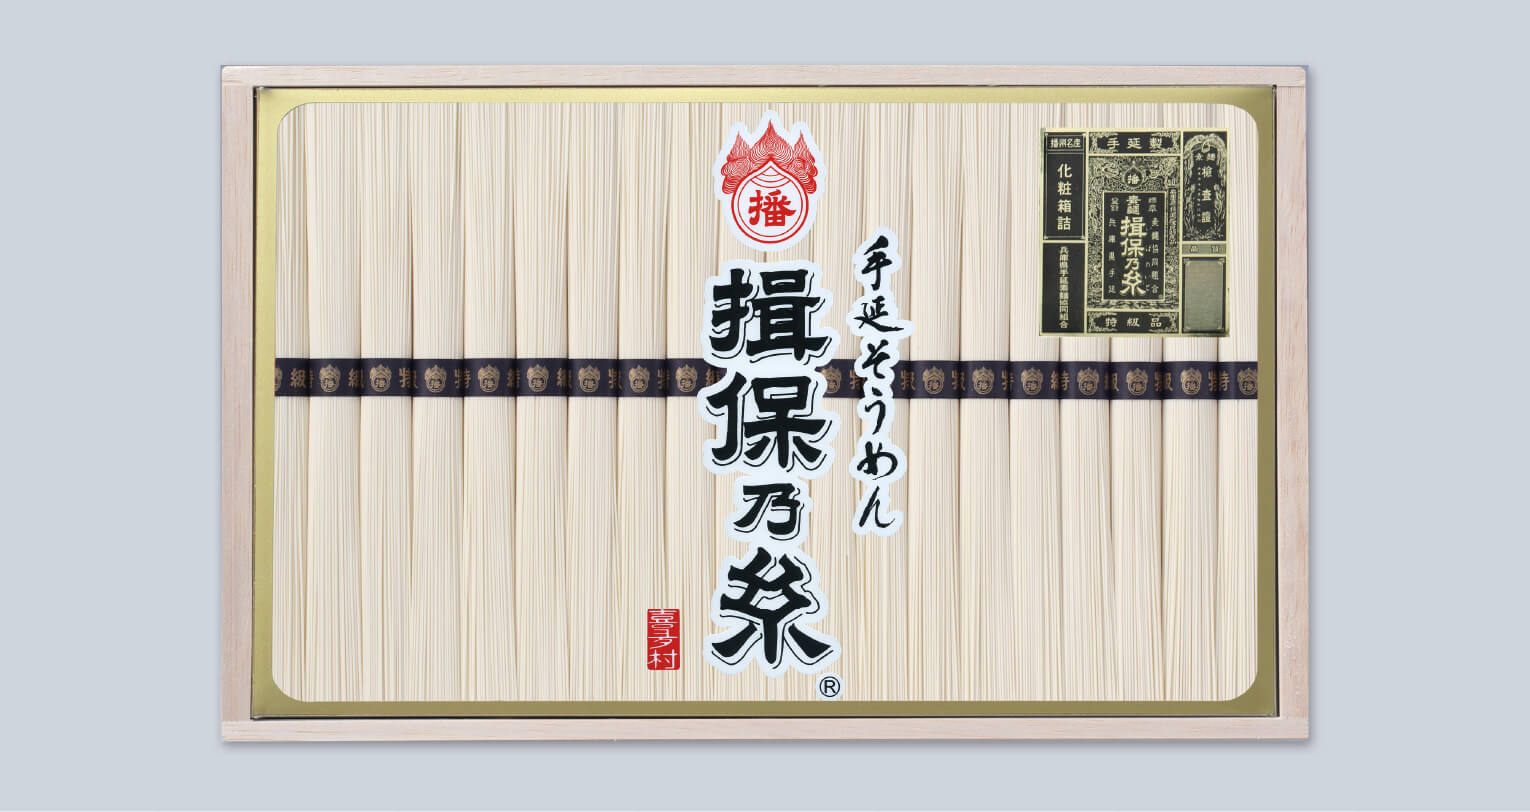 播
揖保乃糸
®
手延そうめん
喜多村
播州名産
化粧箱詰
兵庫県手延素麺協同組合
手延製
播
素麺
揖保乃糸
特級品
検査證
特級
播